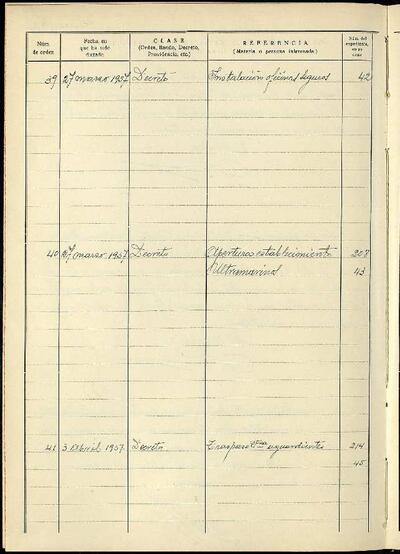 Núm. de orden
Fecha en que ha sido dictado
CLASE
(Orden, Bando, Decreto, Providencia, etc.)
REFERENCIA
(Materia o persona interesada)
Núm. del expediente, en su caso
39 27 marzo 1957 Decreto Instalación oficinas seguros 42
40 27 marzo 1957 Decreto Apertura establecimiento 207
Ultramarinos 43
41 3 Abril 1957 Decreto Traspaso aguardientes 214
45